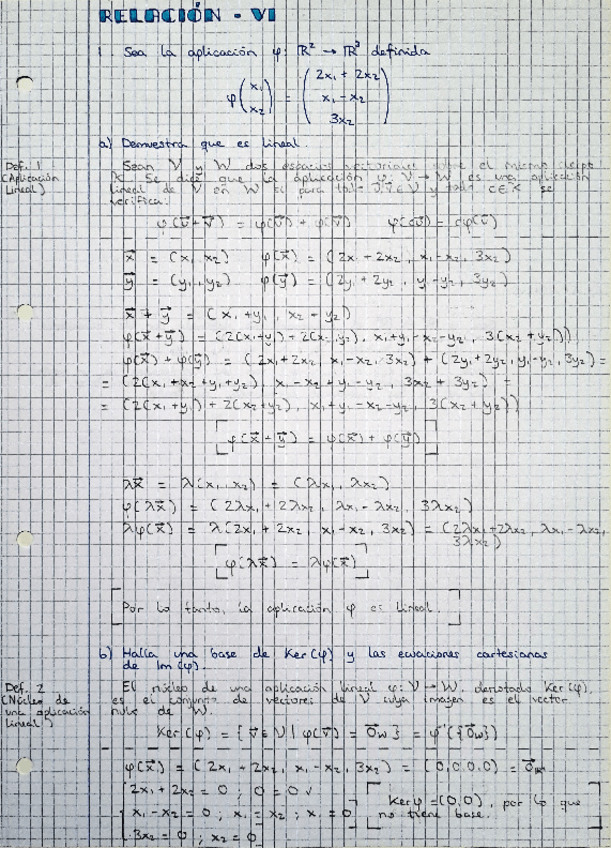 RELACIÓN - VI
1. Sea la aplicación φ: ℝ² → ℝ³ definida
φ(x₁ x₂) = (2x₁ + 2x₂
x₁ - x₂
3x₂)
a) Demuestra que es lineal
Def. 1
(Aplicación
Lineal)
Sean V y W dos espacios vectoriales sobre el mismo cuerpo
K. Se dice que la aplicación φ: V → W es una aplicación
lineal de V en W si para todo u⃗, v⃗ ∈ V y todo c ∈ K se
verifica:
φ(u⃗ + v⃗) = φ(u⃗) + φ(v⃗) φ(cu⃗) = cφ(u⃗)
x⃗ = (x₁, x₂) φ(x⃗) = (2x₁ + 2x₂, x₁ - x₂, 3x₂)
y⃗ = (y₁, y₂) φ(y⃗) = (2y₁ + 2y₂, y₁ - y₂, 3y₂)
x⃗ + y⃗ = (x₁ + y₁, x₂ + y₂)
φ(x⃗ + y⃗) = (2(x₁ + y₁) + 2(x₂ + y₂), x₁ + y₁ - x₂ - y₂, 3(x₂ + y₂))
φ(x⃗) + φ(y⃗) = (2x₁ + 2x₂, x₁ - x₂, 3x₂) + (2y₁ + 2y₂, y₁ - y₂, 3y₂) =
= (2(x₁ + x₂ + y₁ + y₂), x₁ - x₂ + y₁ - y₂, 3x₂ + 3y₂) =
= (2(x₁ + y₁) + 2(x₂ + y₂), x₁ + y₁ - x₂ - y₂, 3(x₂ + y₂))
[φ(x⃗ + y⃗) = φ(x⃗) + φ(y⃗)]
λx⃗ = λ(x₁, x₂) = (λx₁, λx₂)
φ(λx⃗) = (2λx₁ + 2λx₂, λx₁ - λx₂, 3λx₂)
λφ(x⃗) = λ(2x₁ + 2x₂, x₁ - x₂, 3x₂) = (2λx₁ + 2λx₂, λx₁ - λx₂,
3λx₂)
[φ(λx⃗) = λφ(x⃗)]
[Por lo tanto, la aplicación φ es lineal.]
b) Halla una base de Ker(φ) y las ecuaciones cartesianas
de Im(φ).
Def. 2
(Núcleo de
una aplicación
lineal)
El núcleo de una aplicación lineal φ: V → W, denotado Ker(φ),
es el conjunto de vectores de V cuya imagen es el vector
nulo de W.
Ker(φ) = {v⃗ ∈ V | φ(v⃗) = 0⃗w} = φ⁻¹({0⃗w})
φ(x⃗) = (2x₁ + 2x₂, x₁ - x₂, 3x₂) = (0, 0, 0, 0) = 0⃗
2x₁ + 2x₂ = 0 ; 0 = 0 ✓
x₁ - x₂ = 0 ; x₁ = x₂ ; x₁ = 0
3x₂ = 0 ; x₂ = 0
[Kerφ = (0,0), por lo que
no tiene base.]